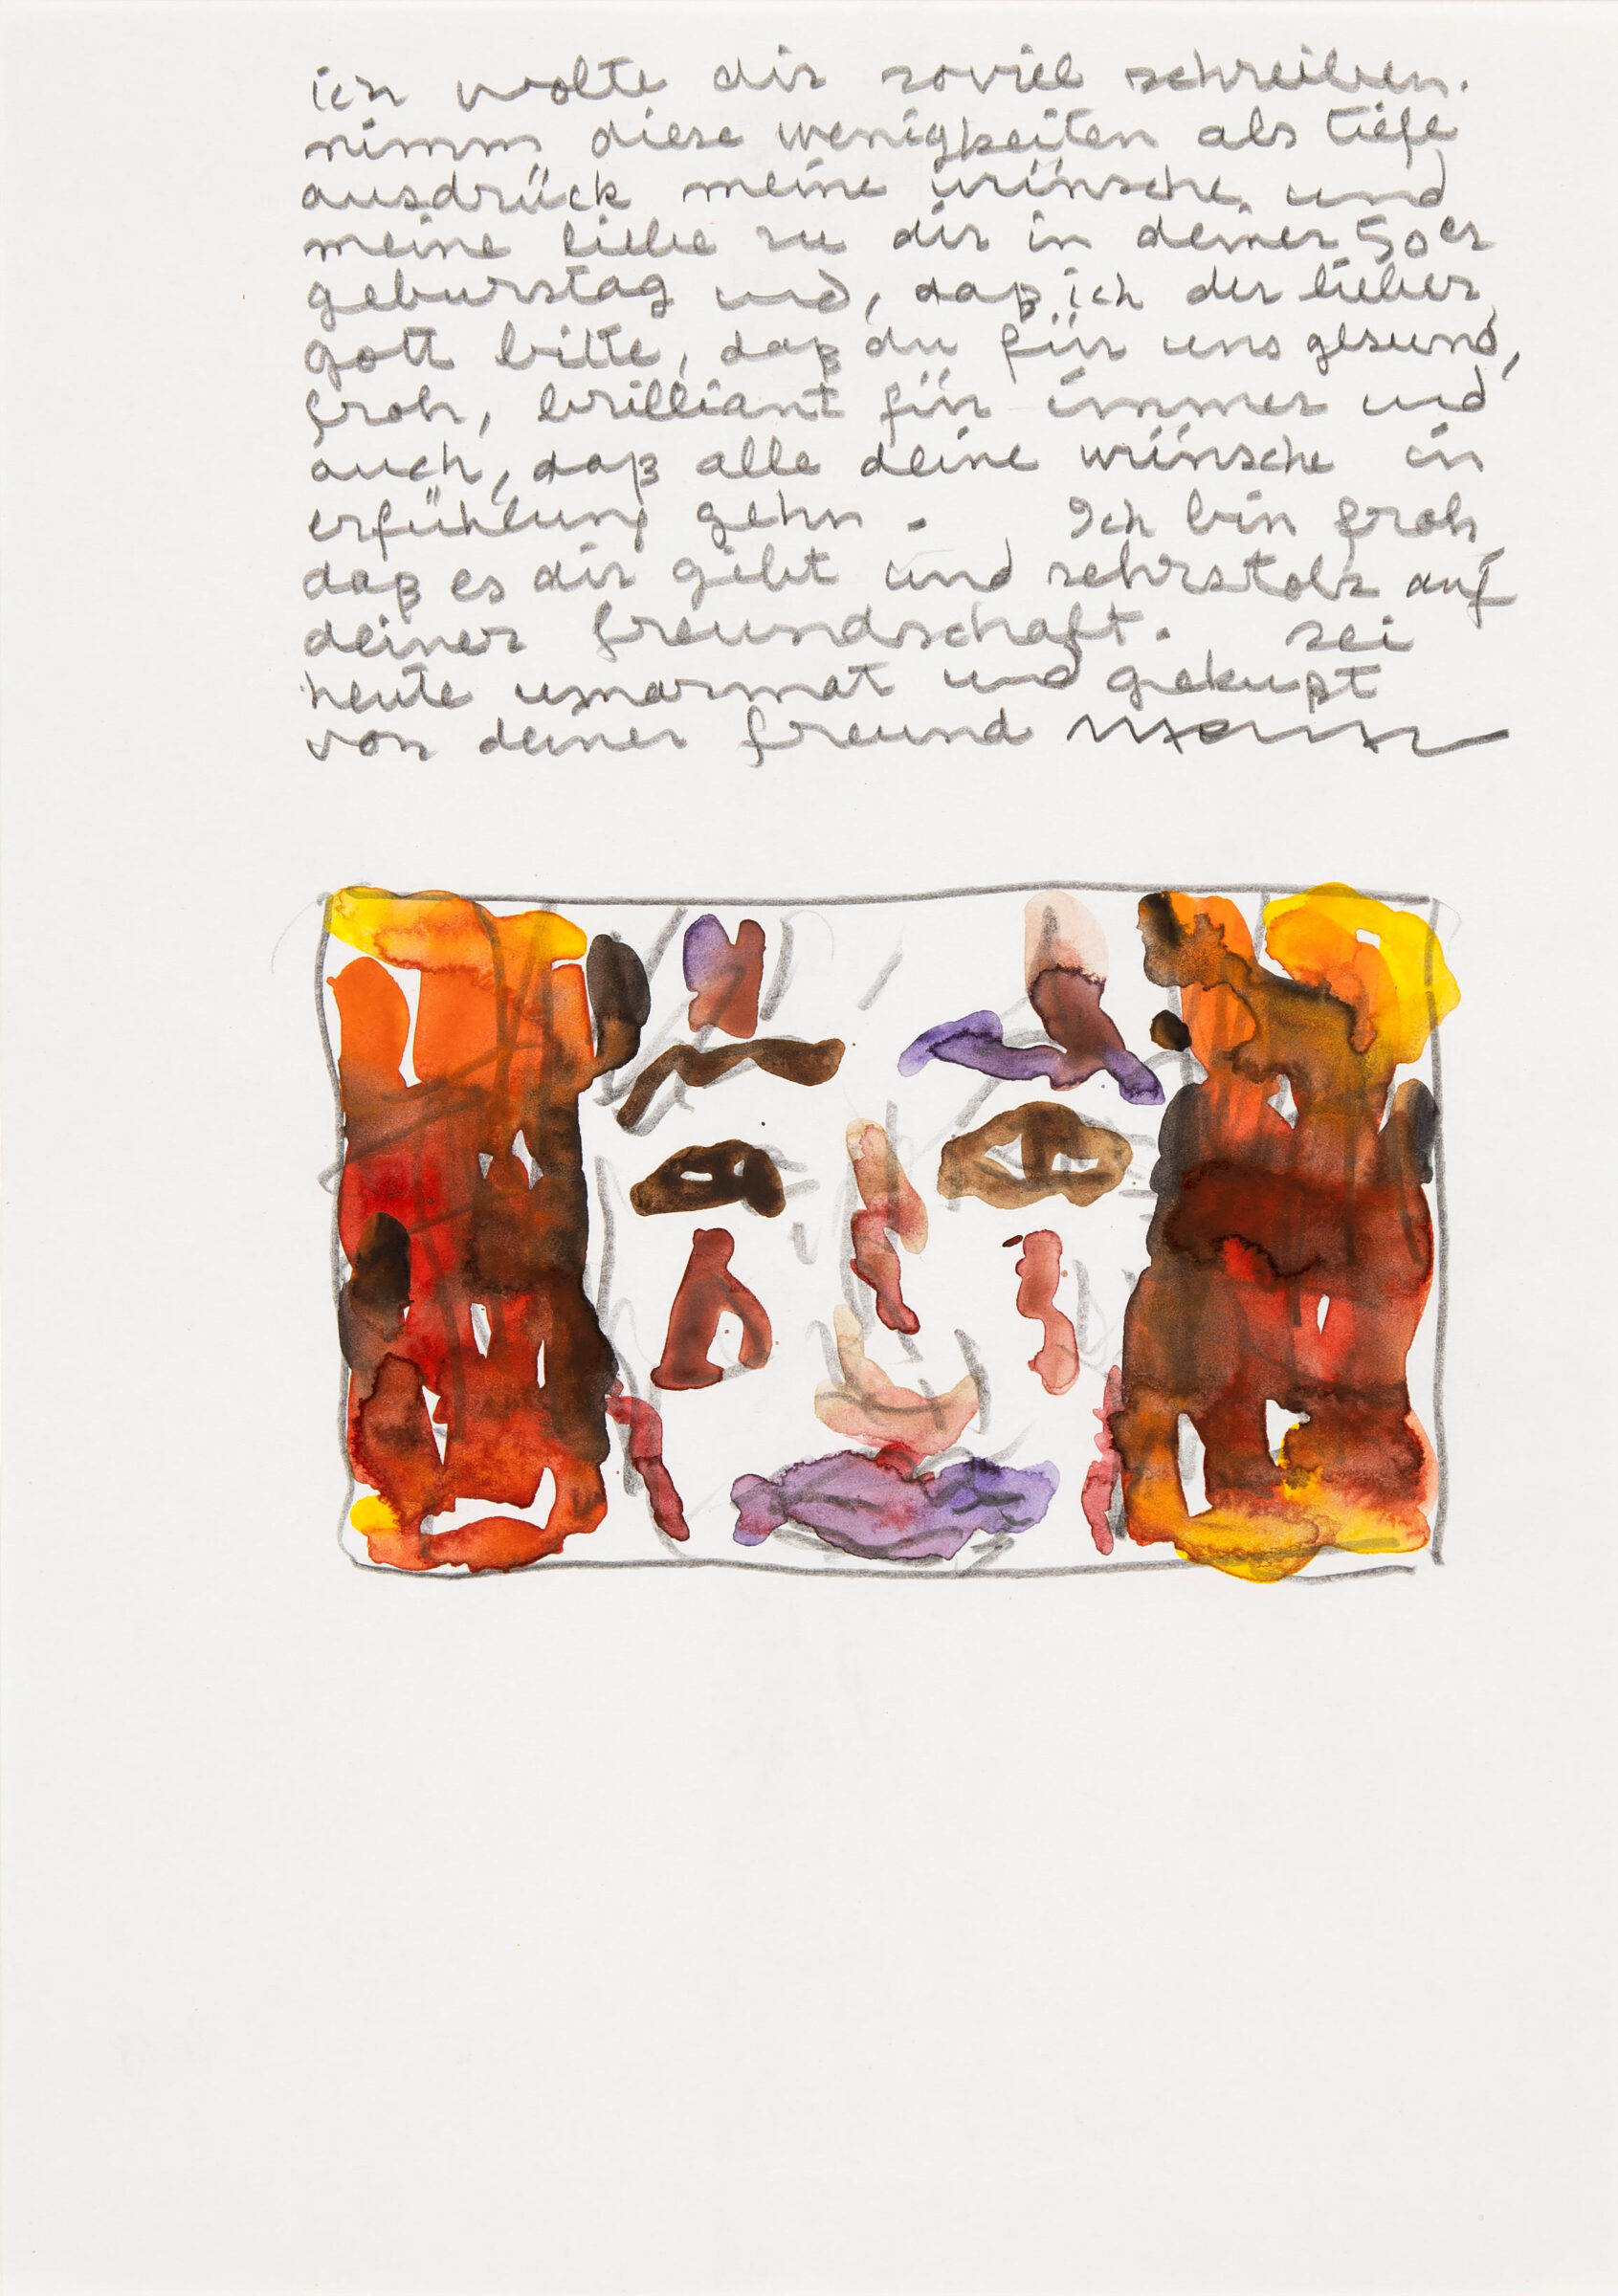 ich wolte dir soviel schreiben.
nimm diese wenigkeiten als tiefe
ausdrück meine wünsche und
meine liebe zu dir in deiner 50er
geburstag und, daß ich der lieber
gott bitte, daß du für uns gesund,
froh, brilliant für immer und
auch, daß alle deine wünsche in
erfühlung gehn. Ich bin froh,
daß es dir gibt und sehr stolz auf
deiner freundschaft. sei
heute umarmat und gekußt
von deiner freund